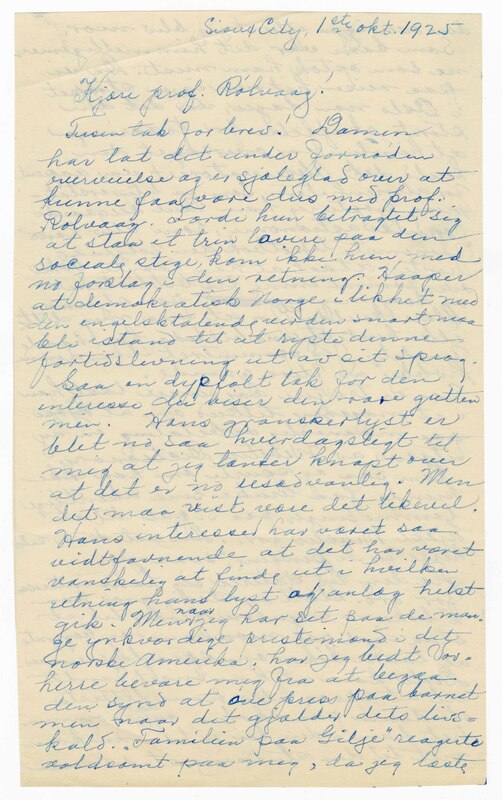 Sioux City, 1ste okt. 1925
Kjære prof. Rølvaag!
Tusen tak for brev! Damen
har tat det under fornøden
overveielse og er sjæleglad over at
kunne faa være dus med prof.
Rølvaag. Fordi hun betragtet sig
at staa et trin lavere paa den
sociale stige, kom ikke hun med
no forslag i den retning. Haaper
at demokratisk Norge i likhet med
den engelsktalende verden snart maa
bli istand til at ryste denne
fortidslevning ut av sit sprog.
Saa en dypfølt tak for den
interesse du viser den rare gutten
men. Hans granskerlyst er
blit no saa hverdagsligt til
mig at jeg tænker knapt over
at det er no usedvanlig. Men
det maa vist være det likevel.
Hans interesser har været saa
vidtfavnende at det har været
vanskelig at finde ut i hvilken
retning hans lyst og anlæg helst
gik. Men naar jeg har set paa de man-
ge ynkværdige prestemænd i det
norske Amerika, har jeg bedt Vor-
herre bevare meg fra at begaa
den synd at øve press paa barnet
men naar det gjælder dets livs-
kald. "Familien paa Gilje" reagerte
voldsomt paa mig, da jeg læste